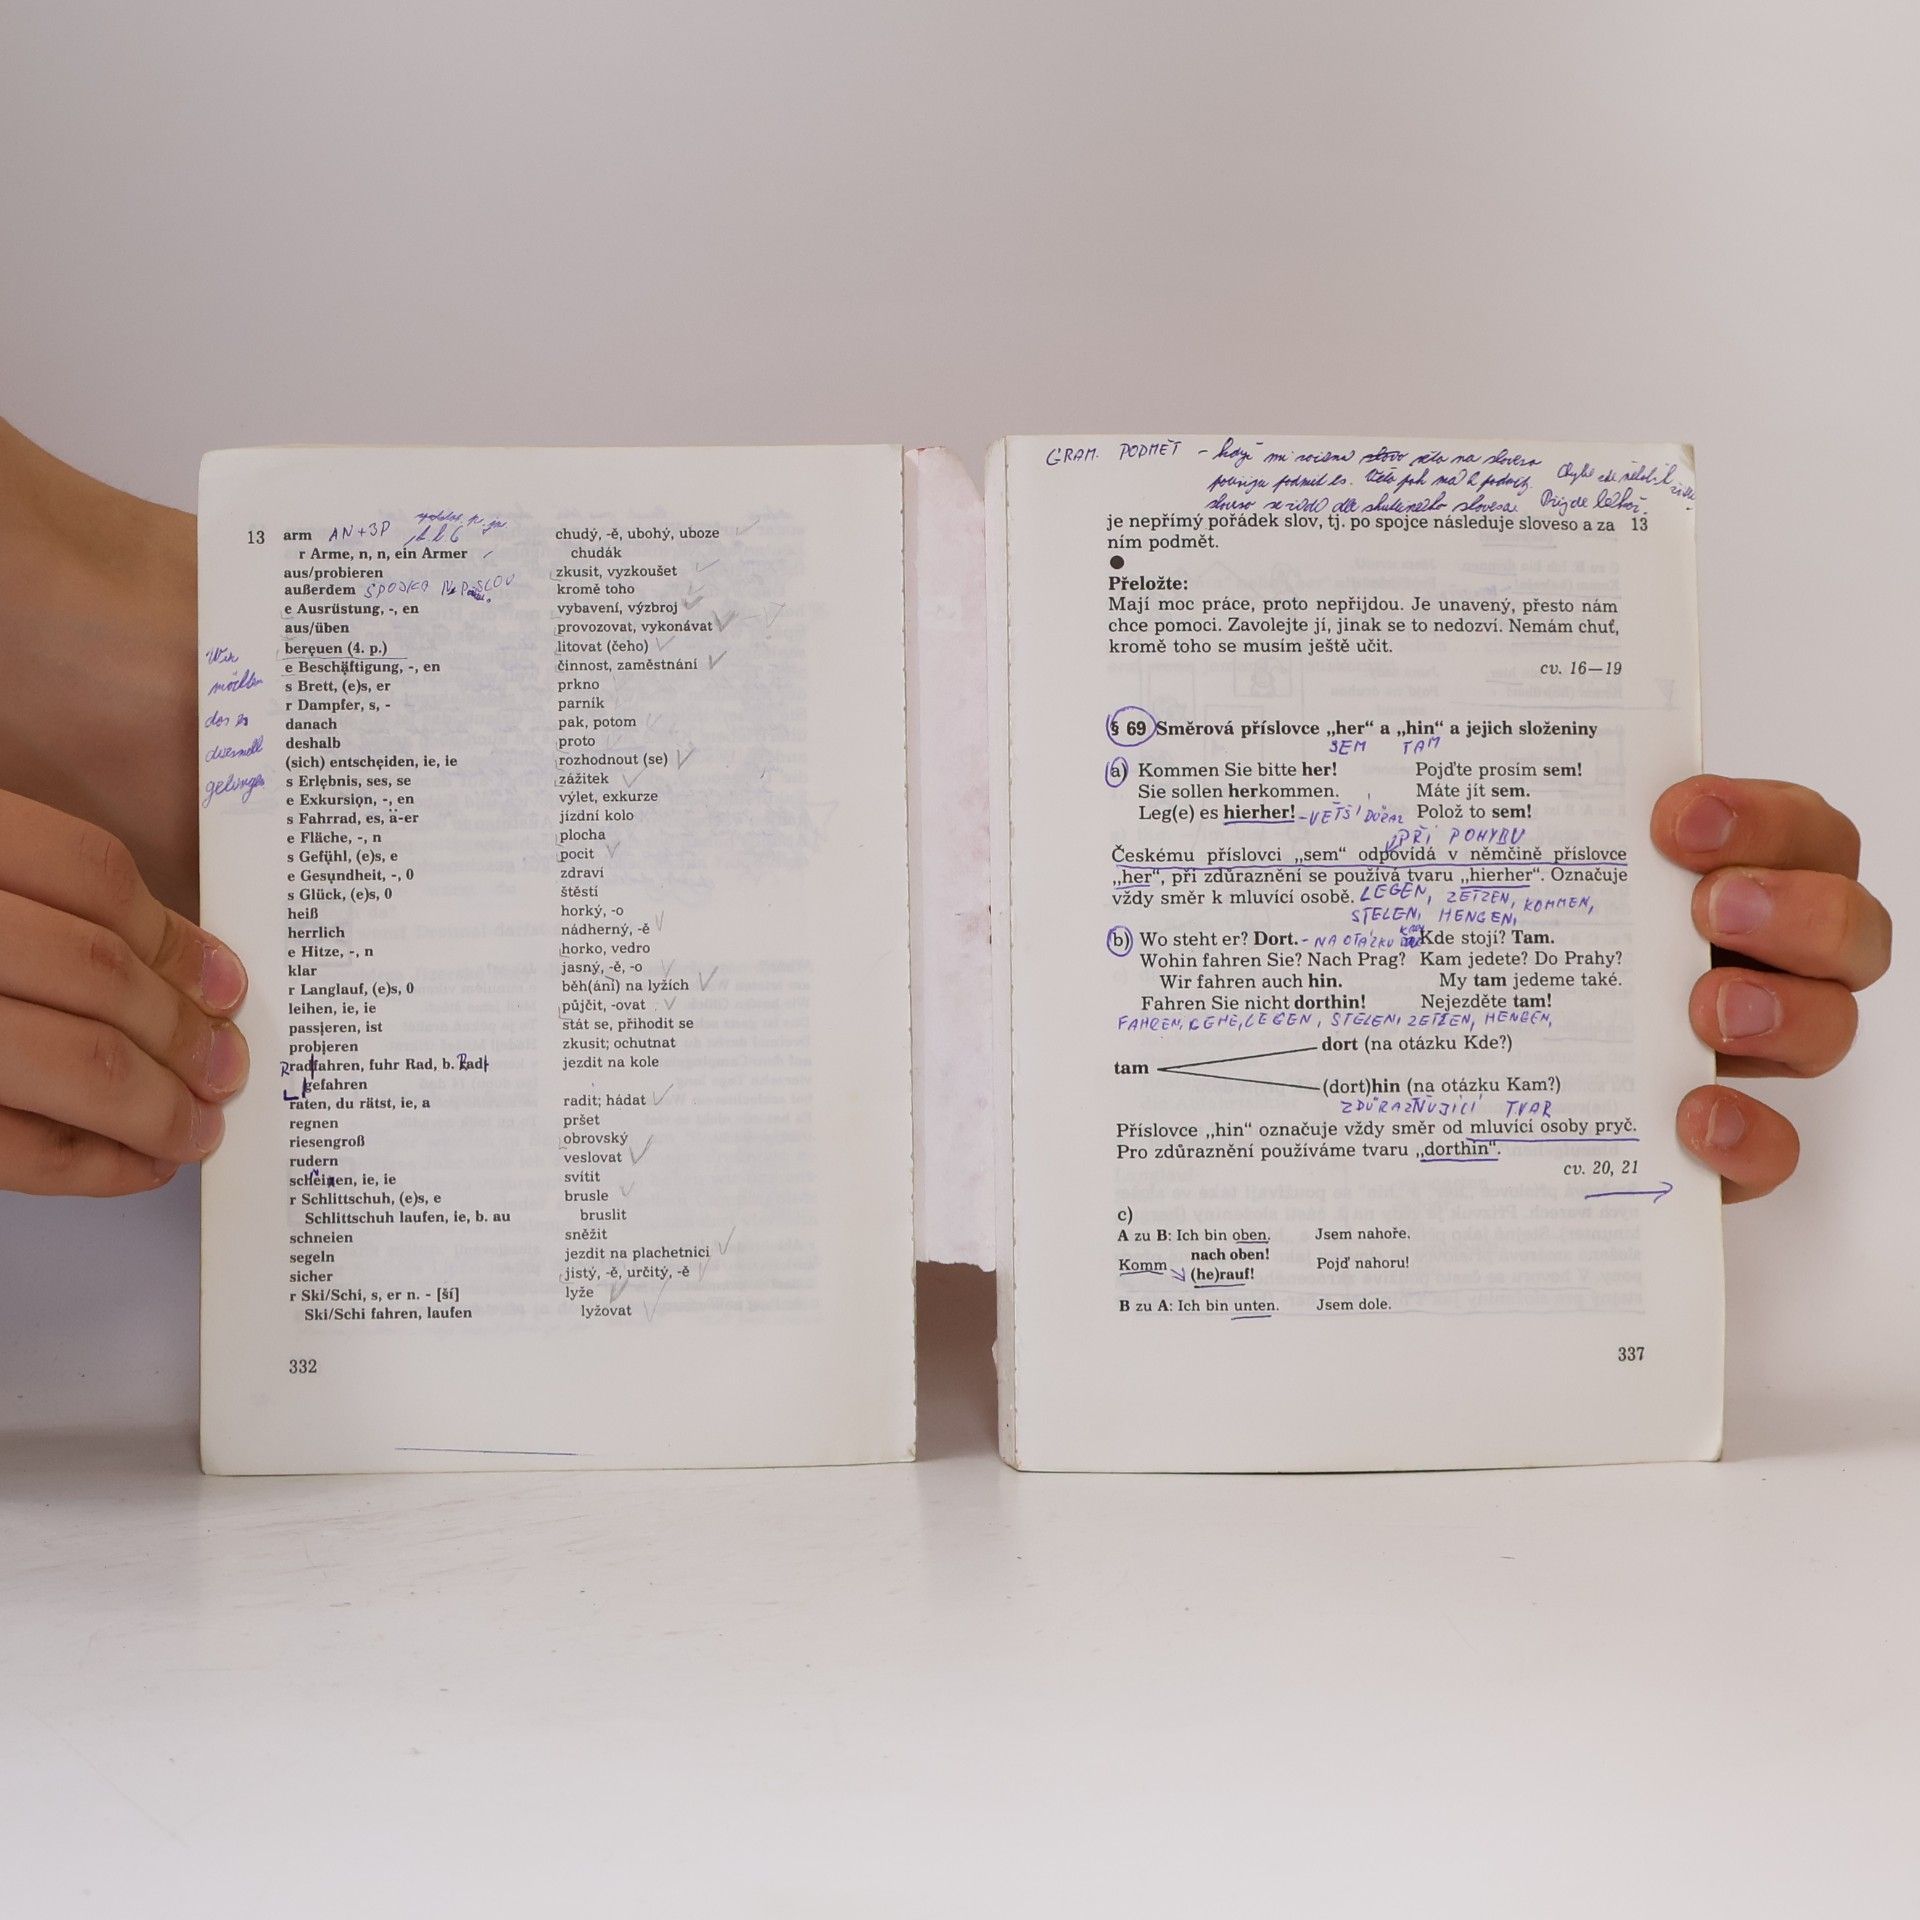 13 arm AN+3P chudý, -ě, ubohý, uboze
r Arme, n, n, ein Armer chudák
aus/probieren zkusit, vyzkoušet
außerdem SPOJKA kromě toho
e Ausrüstung, -, en vybavení, výzbroj
aus/üben provozovat, vykonávat
bereuen (4. p.) litovat (čeho)
e Beschäftigung, -, en činnost, zaměstnání
s Brett, (e)s, er prkno
r Dampfer, s, - parník
danach pak, potom
deshalb proto
(sich) entscheiden, ie, ie rozhodnout (se)
s Erlebnis, ses, se zážitek
e Exkursion, -, en výlet, exkurze
s Fahrrad, es, ä-er jízdní kolo
e Fläche, -, n plocha
s Gefühl, (e)s, e pocit
e Gesundheit, -, 0 zdraví
s Glück, (e)s, 0 štěstí
heiß horký, -o
herrlich nádherný, -ě
e Hitze, -, n horko, vedro
klar jasný, -ě, -o
r Langlauf, (e)s, 0 běh(ání) na lyžích
leihen, ie, ie půjčit, -ovat
passieren, ist stát se, přihodit se
probieren zkusit; ochutnat
radfahren, fuhr Rad, b. Rad jezdit na kole
gefahren
raten, du rätst, ie, a radit; hádat
regnen pršet
riesengroß obrovský
rudern veslovat
scheinen, ie, ie svítit
r Schlittschuh, (e)s, e brusle
Schlittschuh laufen, ie, b. au bruslit
schneien sněžit
segeln jezdit na plachetnici
sicher jistý, -ě, určitý, -ě
r Ski/Schi, s, er n. - [ší] lyže
Ski/Schi fahren, laufen lyžovat
332
Wir
möchten
das es
gelungen
GRAM. PODMĚT - když mi slovo na slovesa
je nepřímý pořádek slov, tj. po spojce následuje sloveso a za 13
ním podmět.
Přeložte:
Mají moc práce, proto nepřijdou. Je unavený, přesto nám
chce pomoci. Zavolejte jí, jinak se to nedozví. Nemám chuť,
kromě toho se musím ještě učit.
cv. 16—19
§ 69 Směrová příslovce „her“ a „hin“ a jejich složeniny
SEM TAM
a) Kommen Sie bitte her! Pojďte prosím sem!
Sie sollen herkommen. Máte jít sem.
Leg(e) es hierher! - VĚTŠÍ DŮRAZ Polož to sem!
PŘI POHYBU
Českému příslovci „sem“ odpovídá v němčině příslovce
„her“, při zdůraznění se používá tvaru „hierher“. Označuje
vždy směr k mluvící osobě. LEGEN, ZETZEN, KOMMEN,
STELEN, HENGEN,
b) Wo steht er? Dort. - NA OTÁZKU Kde stojí? Tam.
Wohin fahren Sie? Nach Prag? Kam jedete? Do Prahy?
Wir fahren auch hin. My tam jedeme také.
Fahren Sie nicht dorthin! Nejezděte tam!
FAHREN, GEHE, LEGEN, STELEN, ZETZEN, HENGEN,
dort (na otázku Kde?)
tam
(dort)hin (na otázku Kam?)
ZDŮRAZŇUJÍCÍ TVAR
Příslovce „hin“ označuje vždy směr od mluvící osoby pryč.
Pro zdůraznění používáme tvaru „dorthin“.
cv. 20, 21
c)
A zu B: Ich bin oben. Jsem nahoře.
nach oben!
Komm Pojď nahoru!
(he)rauf!
B zu A: Ich bin unten. Jsem dole.
337